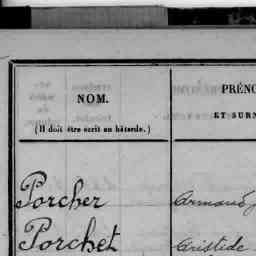 NOM.
PRÉNO
(Il doit être écrit en bâtarde.)
ET SURN
Porcher Armand
Porchet Aristide